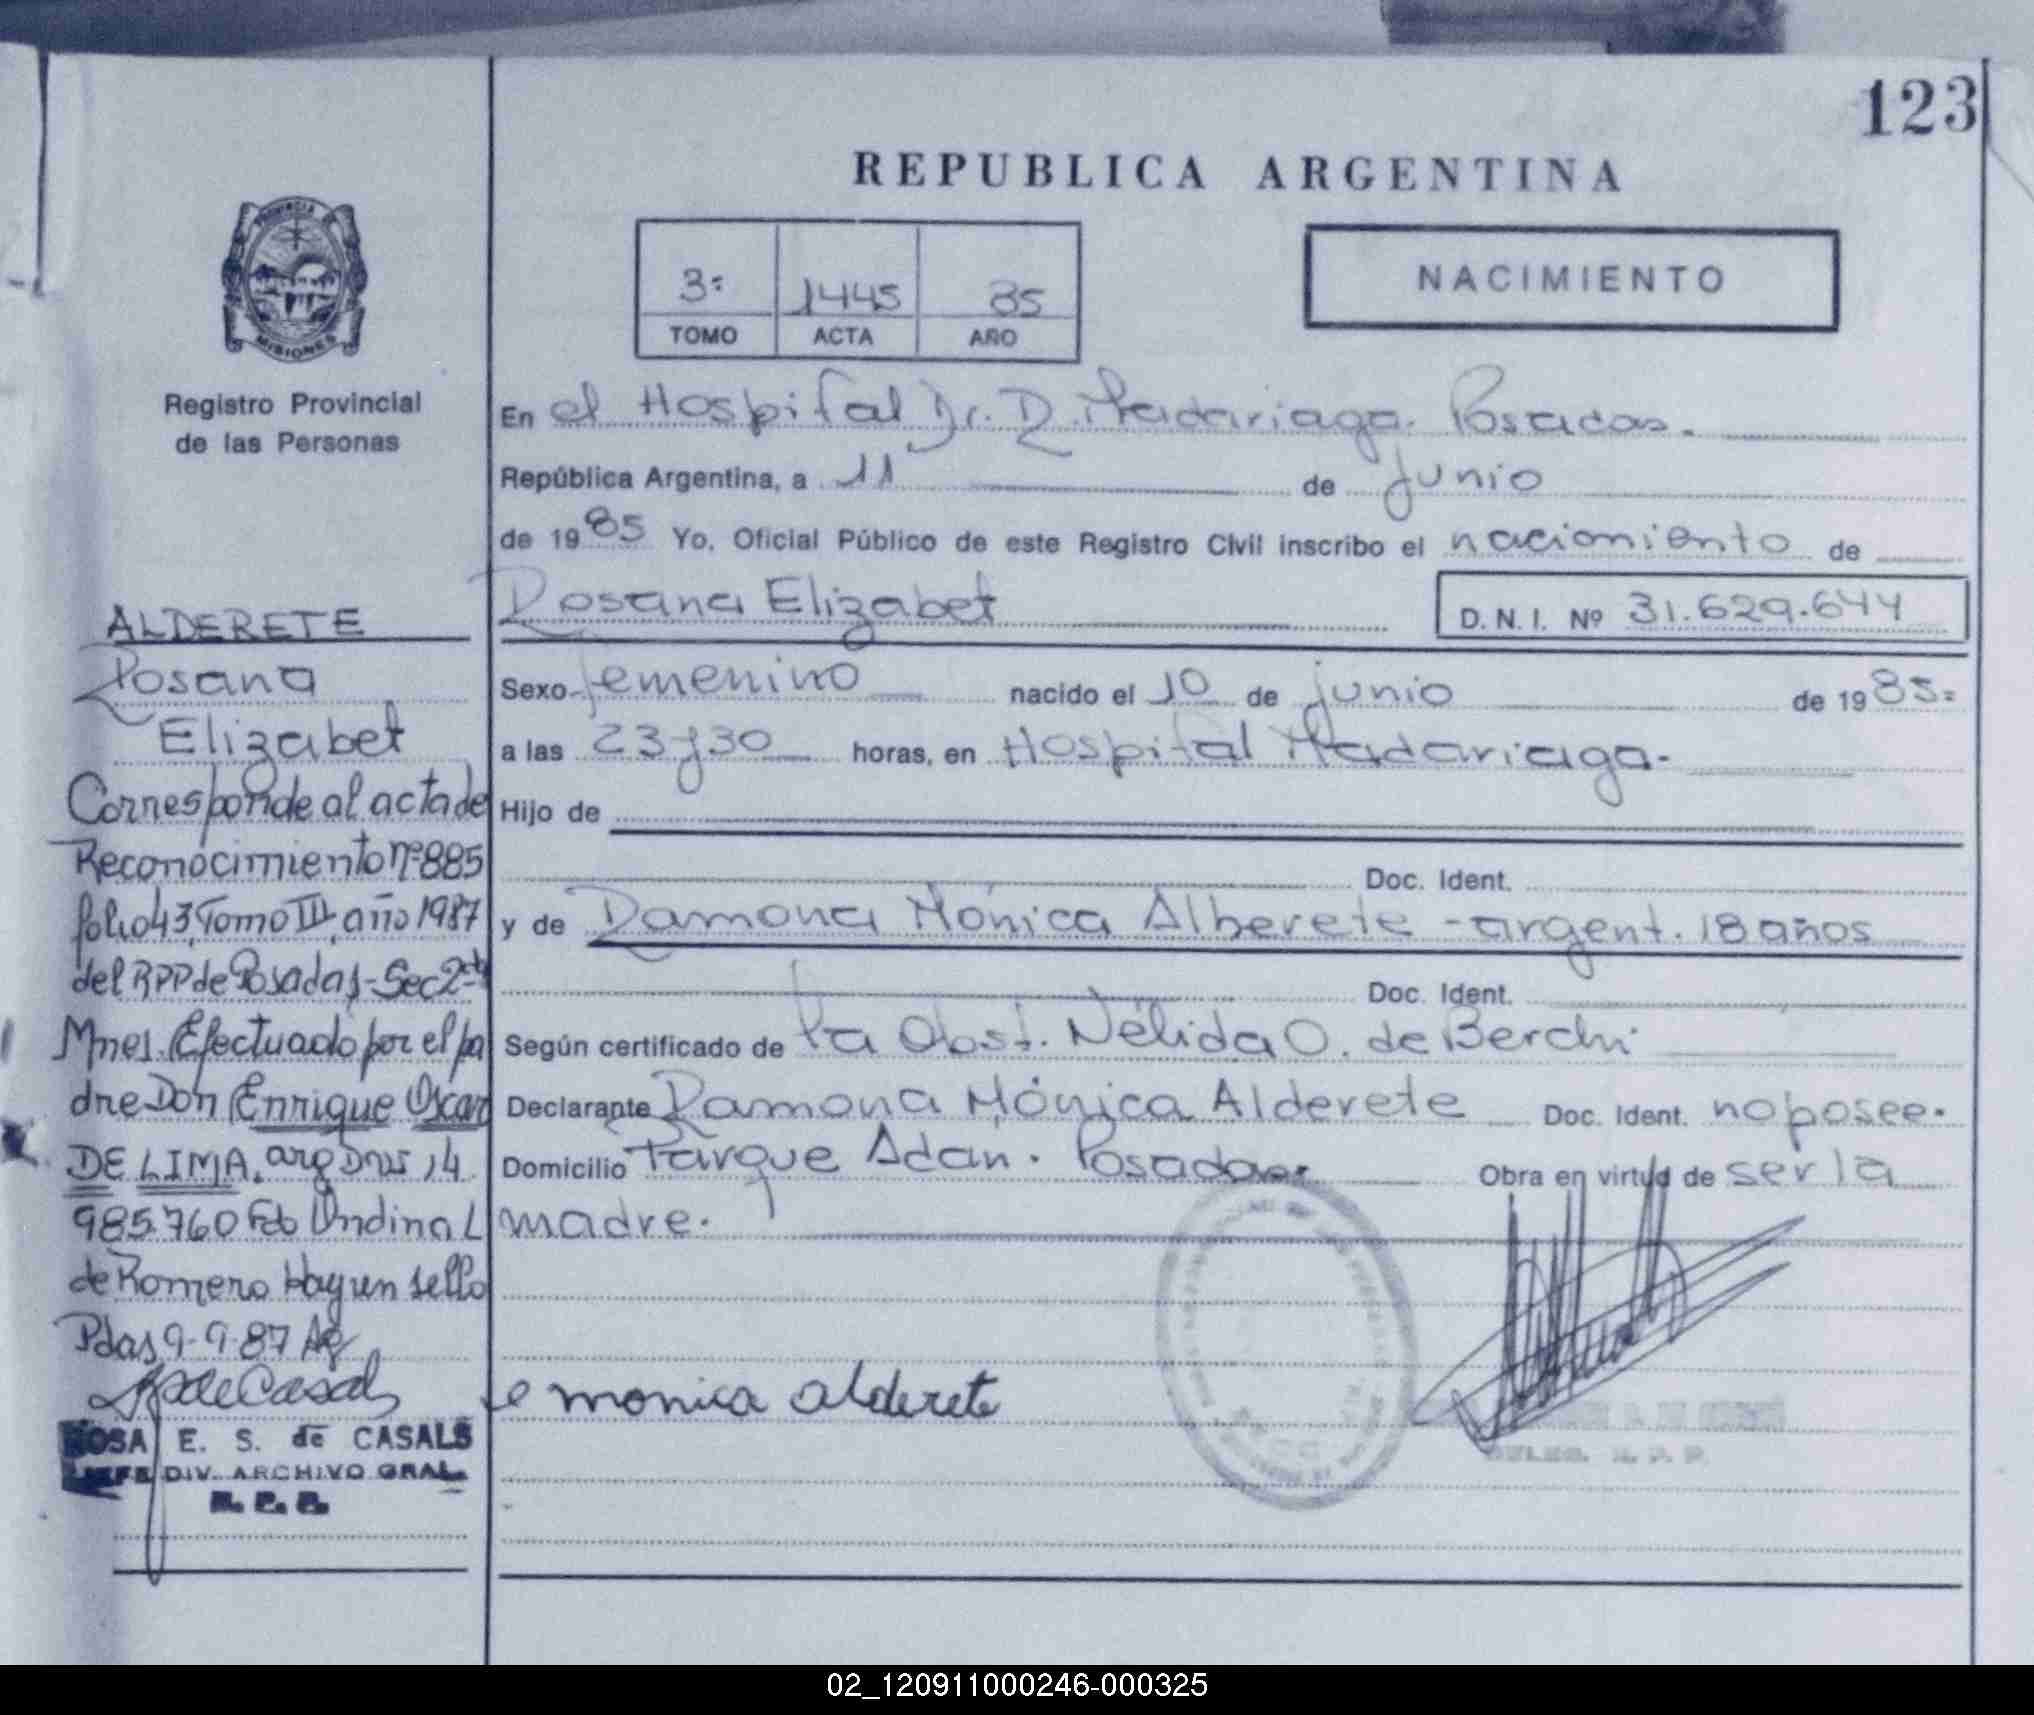 123
REPUBLICA ARGENTINA
PROVINCIA DE
MISIONES
Registro Provincial
de las Personas
3º 1445 85
TOMO ACTA AÑO
NACIMIENTO
En el Hospital Dr. R. Madariaga. Posadas.
República Argentina, a 11 de junio
de 1985 Yo, Oficial Público de este Registro Civil inscribo el nacimiento de
Rosana Elizabet
D. N. I. Nº 31.629.644
Sexo femenino nacido el 10 de junio de 1985=
a las 23y30 horas, en Hospital Madariaga-
Hijo de
Doc. Ident.
y de Ramona Mónica Alberete - argent. 18 años
Doc. Ident.
Según certificado de la Obst. Nélida O. de Berchi
Declarante Ramona Mónica Alderete Doc. Ident. no posee.
Domicilio Parque Adán. Posadas. Obra en virtud de ser la
madre.
monica alderete
ALDERETE
Rosana
Elizabet
Corresponde al acta de
Reconocimiento nº 885
folio 43, Tomo III, año 1987
del RPP de Posadas - Sec 2ª
Mnes. Efectuado por el pa
dre Don Enrique Oscar
DE LIMA. arg DNI 14
985.760 Fdo Undina L
de Romero Hay un sello
Pdas 9-9-87
de Casals
ROSA E. S. de CASALS
JEFE DIV. ARCHIVO GRAL.
R. P. P.
02_120911000246-000325